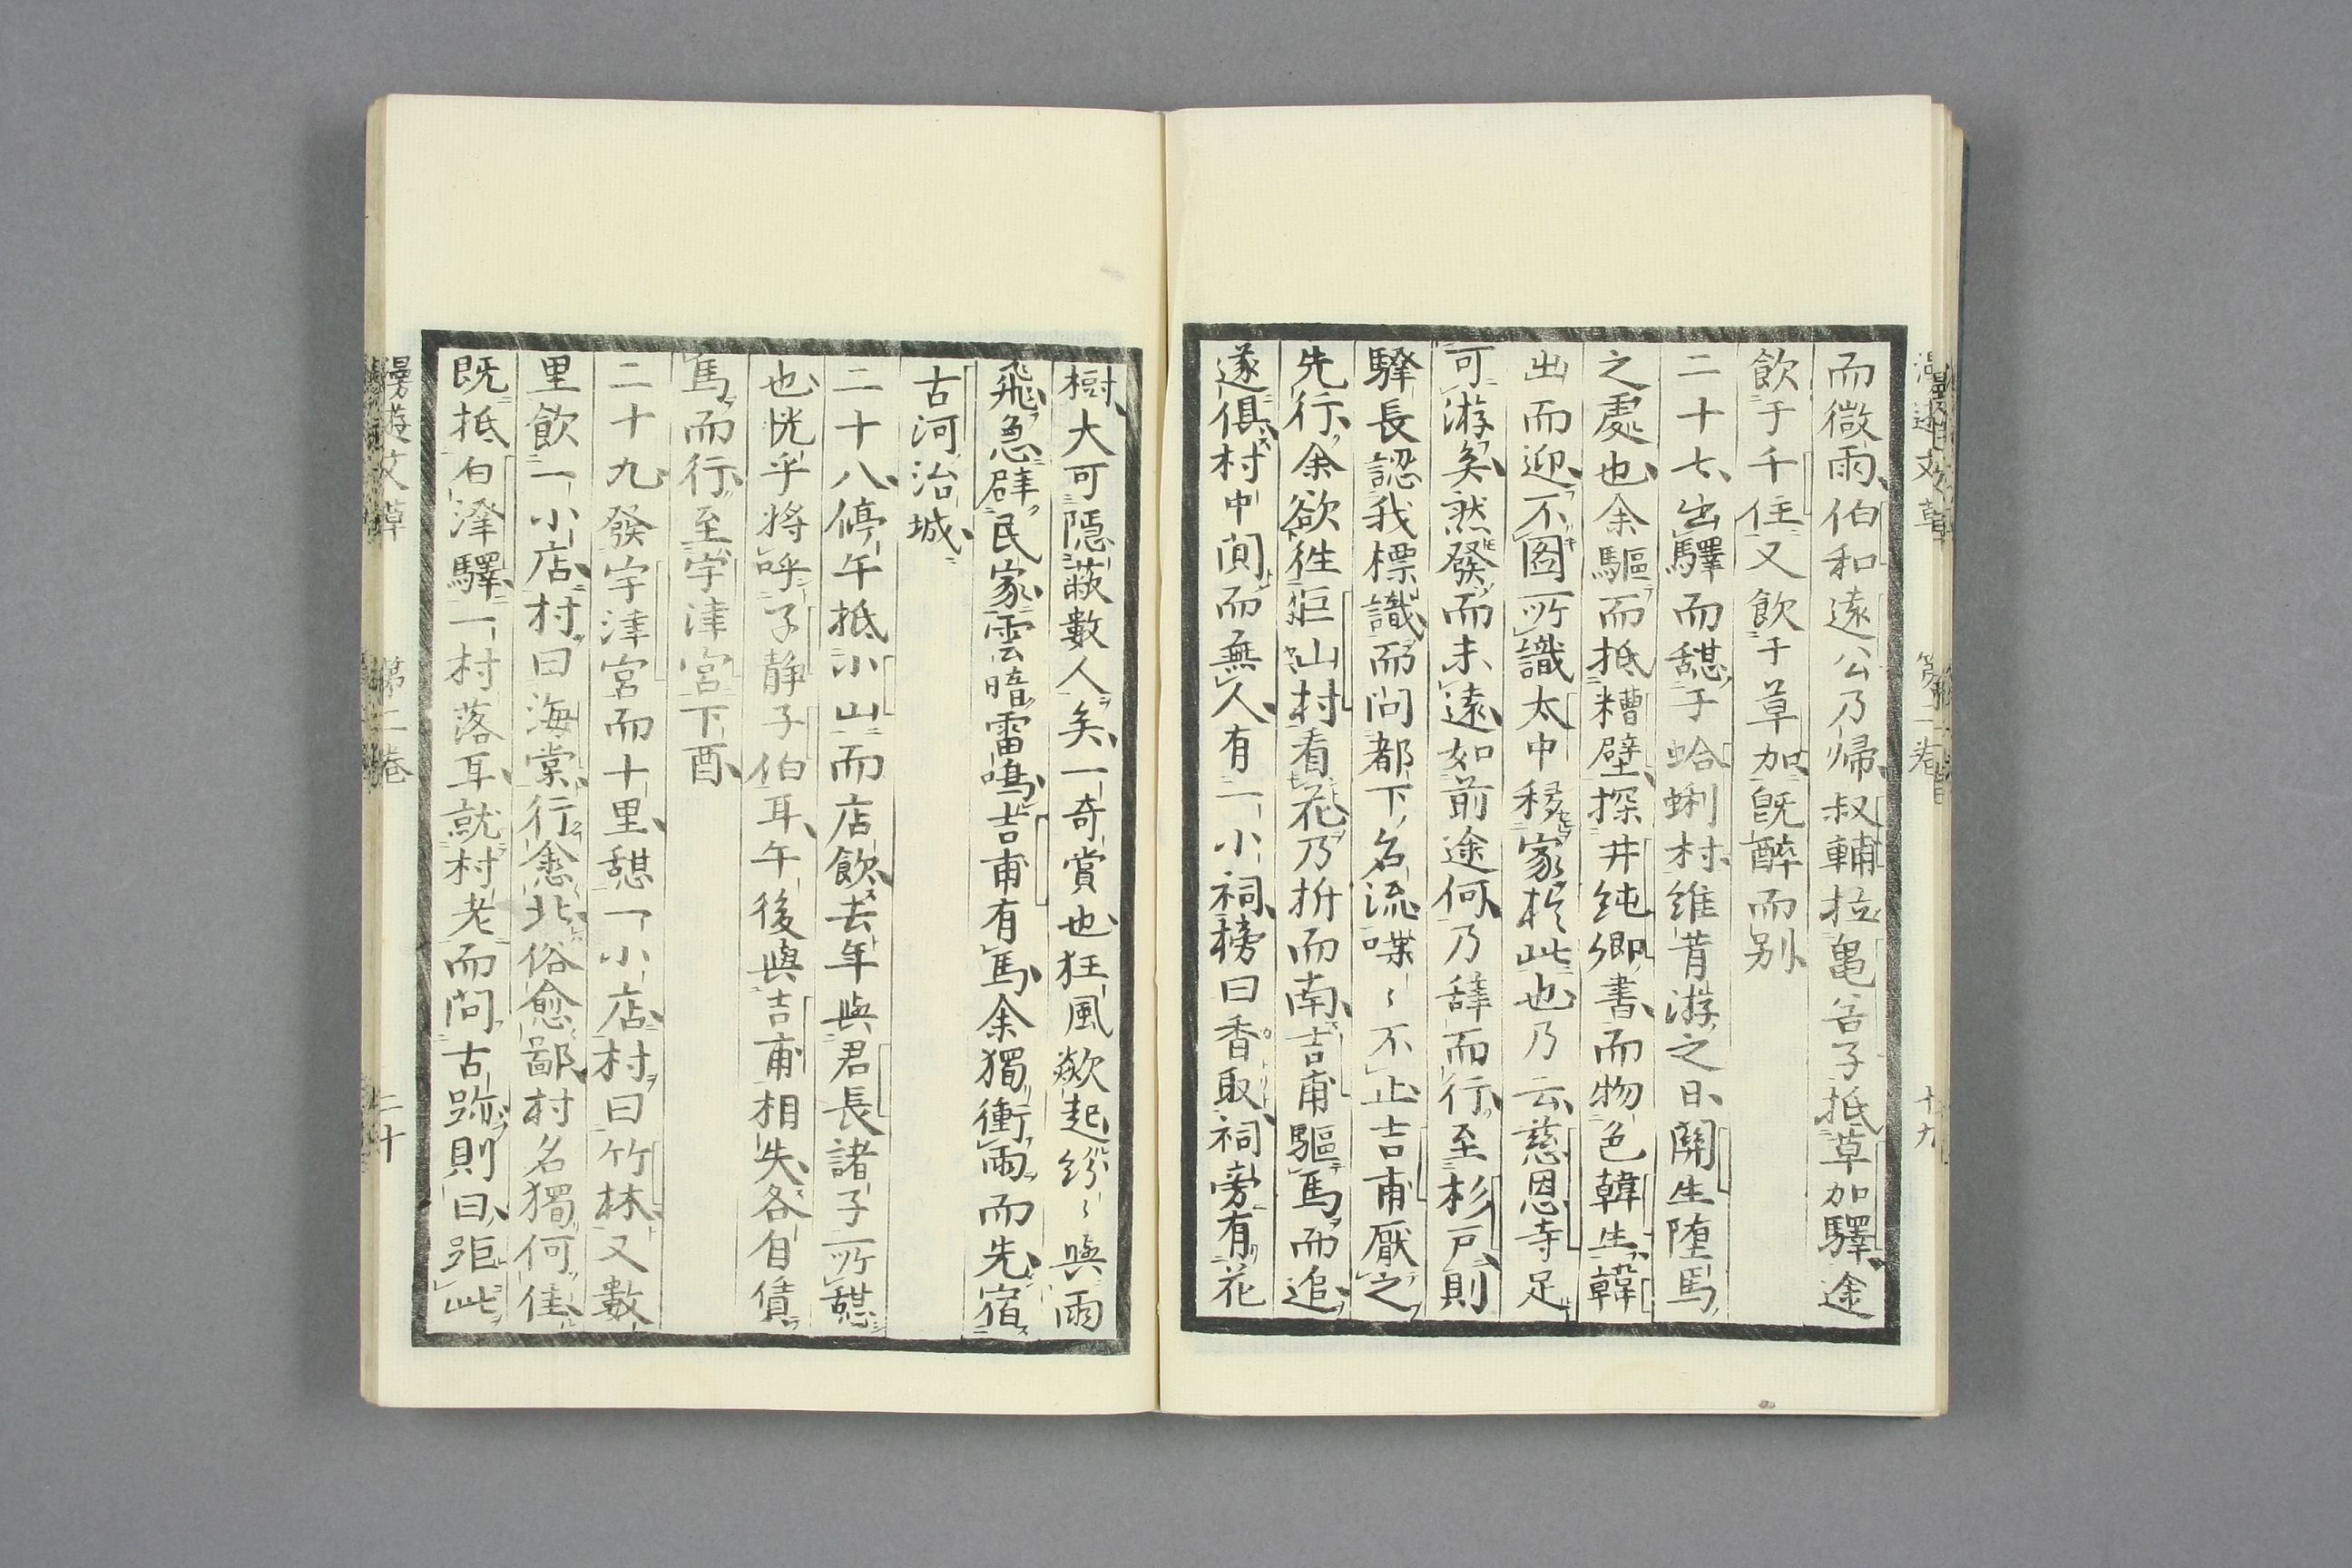 而微雨伯和遠公乃帰叔輔拉亀谷子抵草加驛途
飲于千住又飲于草加既醉而別
二十七出驛而憩于蛤蜊村維昔游之日關生堕馬
之處也余驅而抵糟壁探井純卿書而物色韓生韓
出而迎不図所識太中移家於此也乃云慈恩寺足
可游矣然發而未遠如前途何乃辞而行至杉戸則
驛長認我標識而问都下名流喋〻不止吉甫厭之
先行余欲徃巨山村看花乃折而南吉甫驅馬而追
遂俱村中闃而無人有一小祠榜曰香取祠旁有花
樹大可隠蔽數人矣一奇賞也狂風歘起紛〻與雨
飛急辟民家雲暗雷鳴吉甫有馬余獨衝雨而先宿
古河治城
二十八停午抵小山而店飲去年與君長諸子所憩
也恍乎将呼子静子伯耳午後與吉甫相失各自賃
馬而行至宇津宮下酉
二十九發宇津宮而十里憩一小店村曰竹林又數
里飲一小店村曰海棠行愈北俗愈鄙村名獨何佳
既抵白澤驛一村落耳就村老而问古跡則曰距此
漫遊文草 第二卷 二十